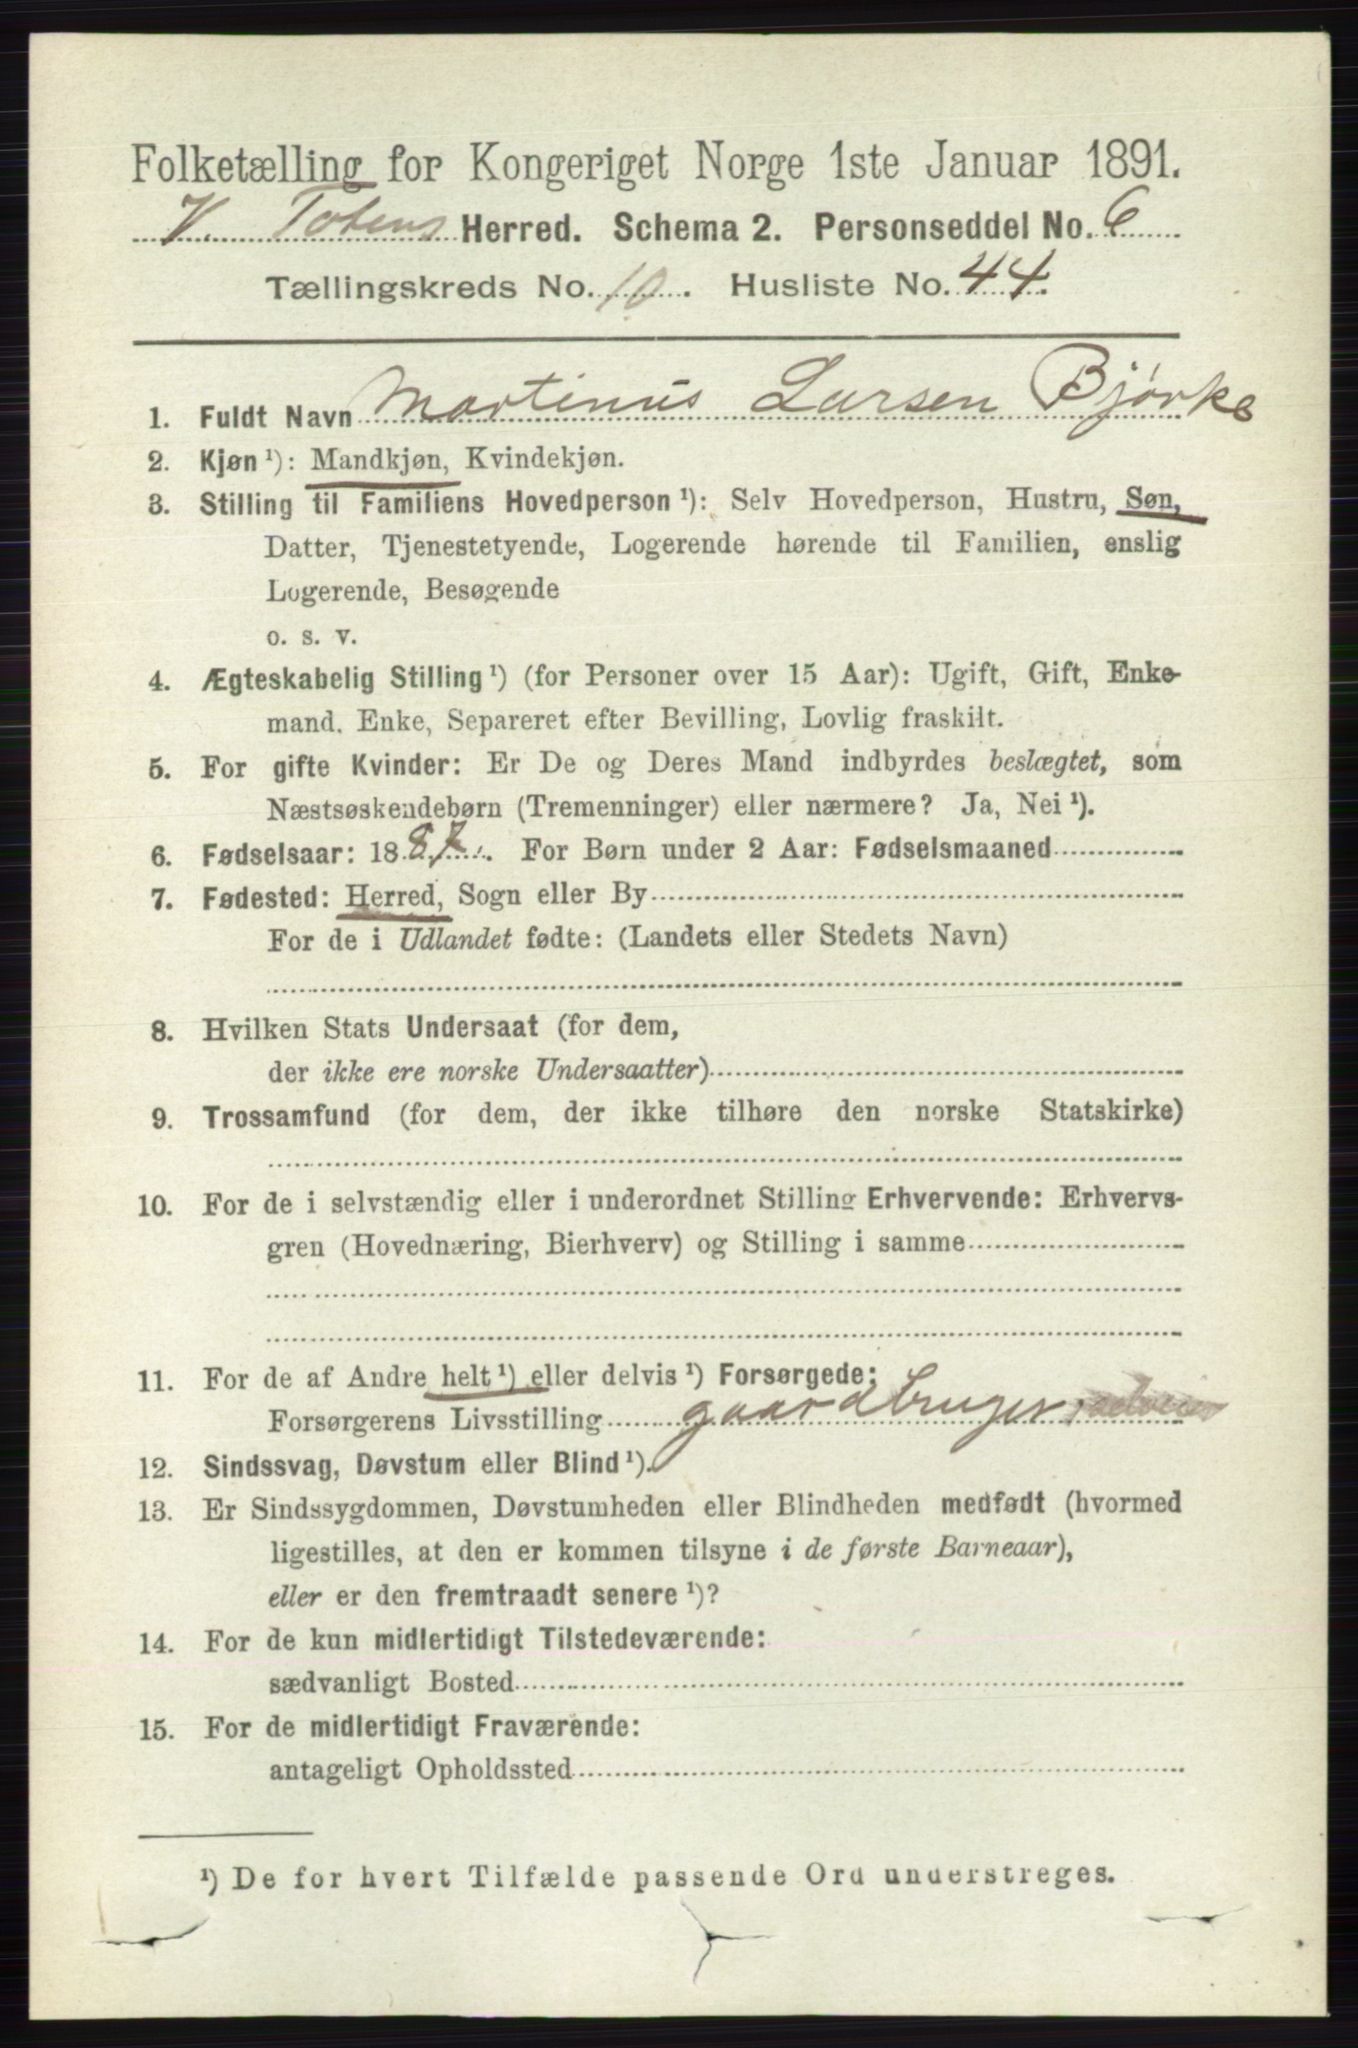 Folketælling for Kongeriget Norge 1ste Januar 1891.
V. Totens Herred. Schema 2. Personseddel No. 6
Tællingskreds No. 10. Husliste No. 44.
1. Fuldt Navn Martinus Larsen Bjørke
2. Kjøn ¹): Mandkjøn, Kvindekjøn.
3. Stilling til Familiens Hovedperson ¹): Selv Hovedperson, Hustru, Søn,
Datter, Tjenestetyende, Logerende hørende til Familien, enslig
Logerende, Besøgende
o. s. v.
4. Ægteskabelig Stilling ¹) (for Personer over 15 Aar): Ugift, Gift, Enke-
mand, Enke, Separeret efter Bevilling, Lovlig fraskilt.
5. For gifte Kvinder: Er De og Deres Mand indbyrdes beslægtet, som
Næstsøskendebørn (Tremenninger) eller nærmere? Ja, Nei ¹).
6. Fødselsaar: 1887. For Børn under 2 Aar: Fødselsmaaned
7. Fødested: Herred, Sogn eller By
For de i Udlandet fødte: (Landets eller Stedets Navn)
8. Hvilken Stats Undersaat (for dem,
der ikke ere norske Undersaatter)
9. Trossamfund (for dem, der ikke tilhøre den norske Statskirke)
10. For de i selvstændig eller i underordnet Stilling Erhvervende: Erhvervs-
gren (Hovednæring, Bierhverv) og Stilling i samme
11. For de af Andre helt ¹) eller delvis ¹) Forsørgede:
Forsørgerens Livsstilling gaardbruger
12. Sindssvag, Døvstum eller Blind ¹).
13. Er Sindssygdommen, Døvstumheden eller Blindheden medfødt (hvormed
ligestilles, at den er kommen tilsyne i de første Barneaar),
eller er den fremtraadt senere ¹)?
14. For de kun midlertidigt Tilstedeværende:
sædvanligt Bosted
15. For de midlertidigt Fraværende:
antageligt Opholdssted
¹) De for hvert Tilfælde passende Ord understreges.